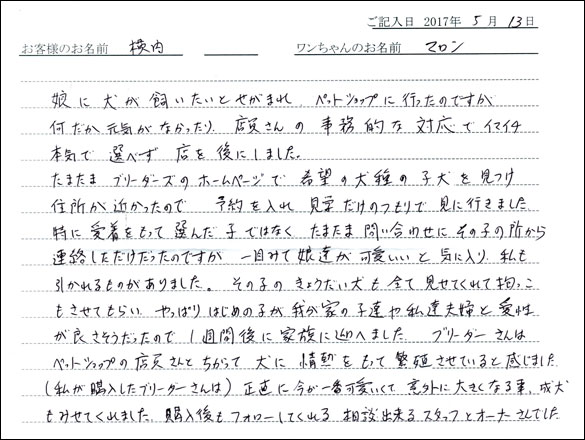 ご記入日 2017年 5月 13日
お客様のお名前 横内 ワンちゃんのお名前 マロン
娘に犬が飼いたいとせがまれ、ペットショップに行ったのですが
何だか元気がなかったり、店員さんの事務的な対応でイマイチ
本気で選べず店を後にしました。
たまたまブリーダーズのホームページで希望の犬種の子犬を見つけ
住所が近かったので 予約を入れ見学だけのつもりで見に行きました
特に愛着をもって選んだ子ではなく たまたま問い合わせにその子の所から
連絡しただけだったのですが 一目みて娘達が可愛いいと気に入り、私も
引かれるものがありました。その子のきょうだい犬も全て見せてくれて抱っこ
もさせてもらい やっぱりはじめの子が我が家の子達や私達夫婦と愛性
が良さそうだったので1週間後に家族に迎へました。 ブリーダーさんは
ペットショップの店員さんとちがって犬に情熱をもって繁殖させていると感じました
(私が購入したブリーダーさんは)正直に今が一番可愛いくて意外に大きくなる事、成犬
もみせてくれました。購入後もフォローしてくれる相談出来るスタッフとオーナーさんでした。